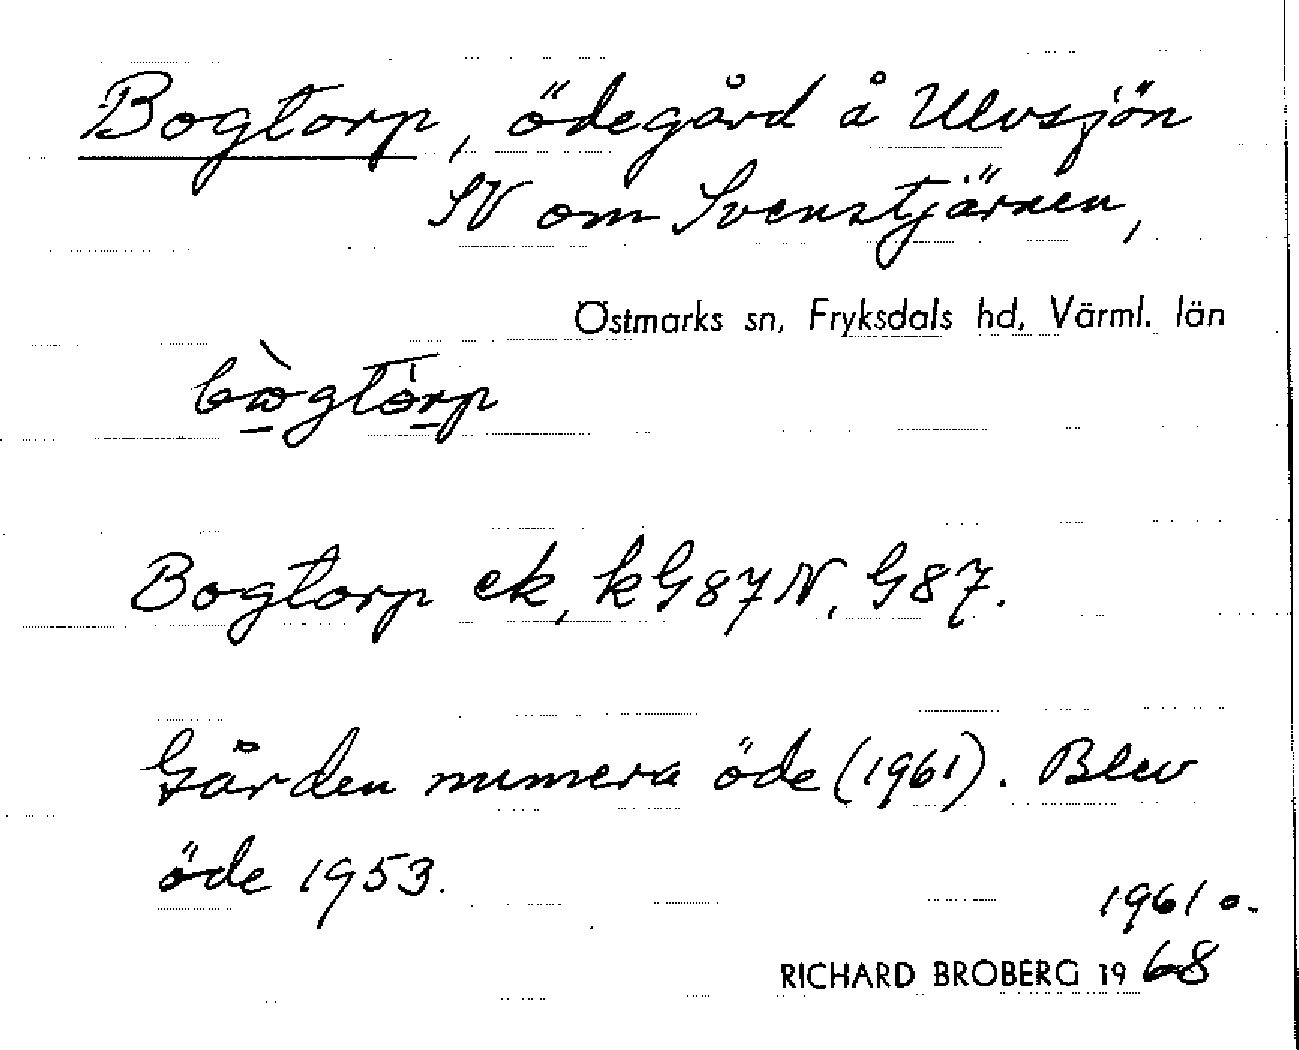 Bogtorp, ödegård å Ulvsjön
SV om Svenstjärnen,
Östmarks sn, Fryksdals hd, Värml. län
Bogtorp ek, kG87N, G87.
Gården numera öde (1961). Blev
öde 1953.
1961 o.
RICHARD BROBERG 1968